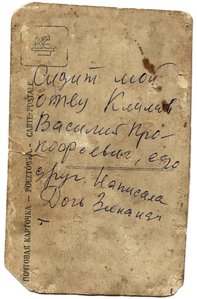 Сидит мой
отец Климов
Василий Про-
кофьевич, его
друг Написала
Дочь Зинаида
ПОЧТОВАЯ КАРТОЧКА — POSZTÓWKA — CARTE POSTALE